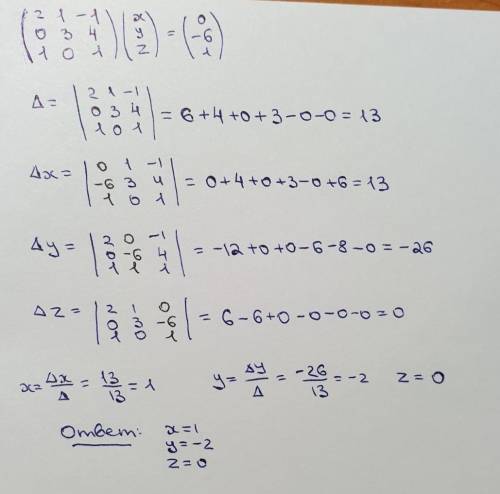 (2 1 -1) (x) = (0)
(0 3 4) (y) = (-6)
(1 0 1) (z) = (1)
Δ = |2 1 -1; 0 3 4; 1 0 1| = 6+4+0+3-0-0 = 13
Δx = |0 1 -1; -6 3 4; 1 0 1| = 0+4+0+3-0+6 = 13
Δy = |2 0 -1; 0 -6 4; 1 1 1| = -12+0+0-6-8-0 = -26
Δz = |2 1 0; 0 3 -6; 1 0 1| = 6-6+0-0-0-0 = 0
x = Δx/Δ = 13/13 = 1 y = Δy/Δ = -26/13 = -2 z = 0
Ответ: x=1
y=-2
z=0